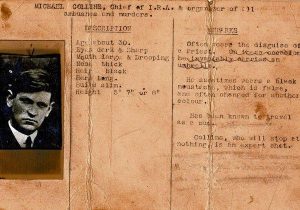 MICHAEL COLLINS, Chief of I.R.A. & organizer of all
ambushes and murders.
DESCRIPTION
Age about 30.
Eyes dark & Sharp
Mouth large & Drooping
Nose thick
Hair black
Face long.
Build slim.
Height 5' 7" or 8"
REMARKS
Often poses the disguise of
a Priest. On these occasions
he invariably carries an
umbrella.
He sometimes wears a black
moustache, which is false,
and often changed for another
colour.
Has been known to travel
as a nun.
Collins, who will stop at
nothing, is an expert shot.